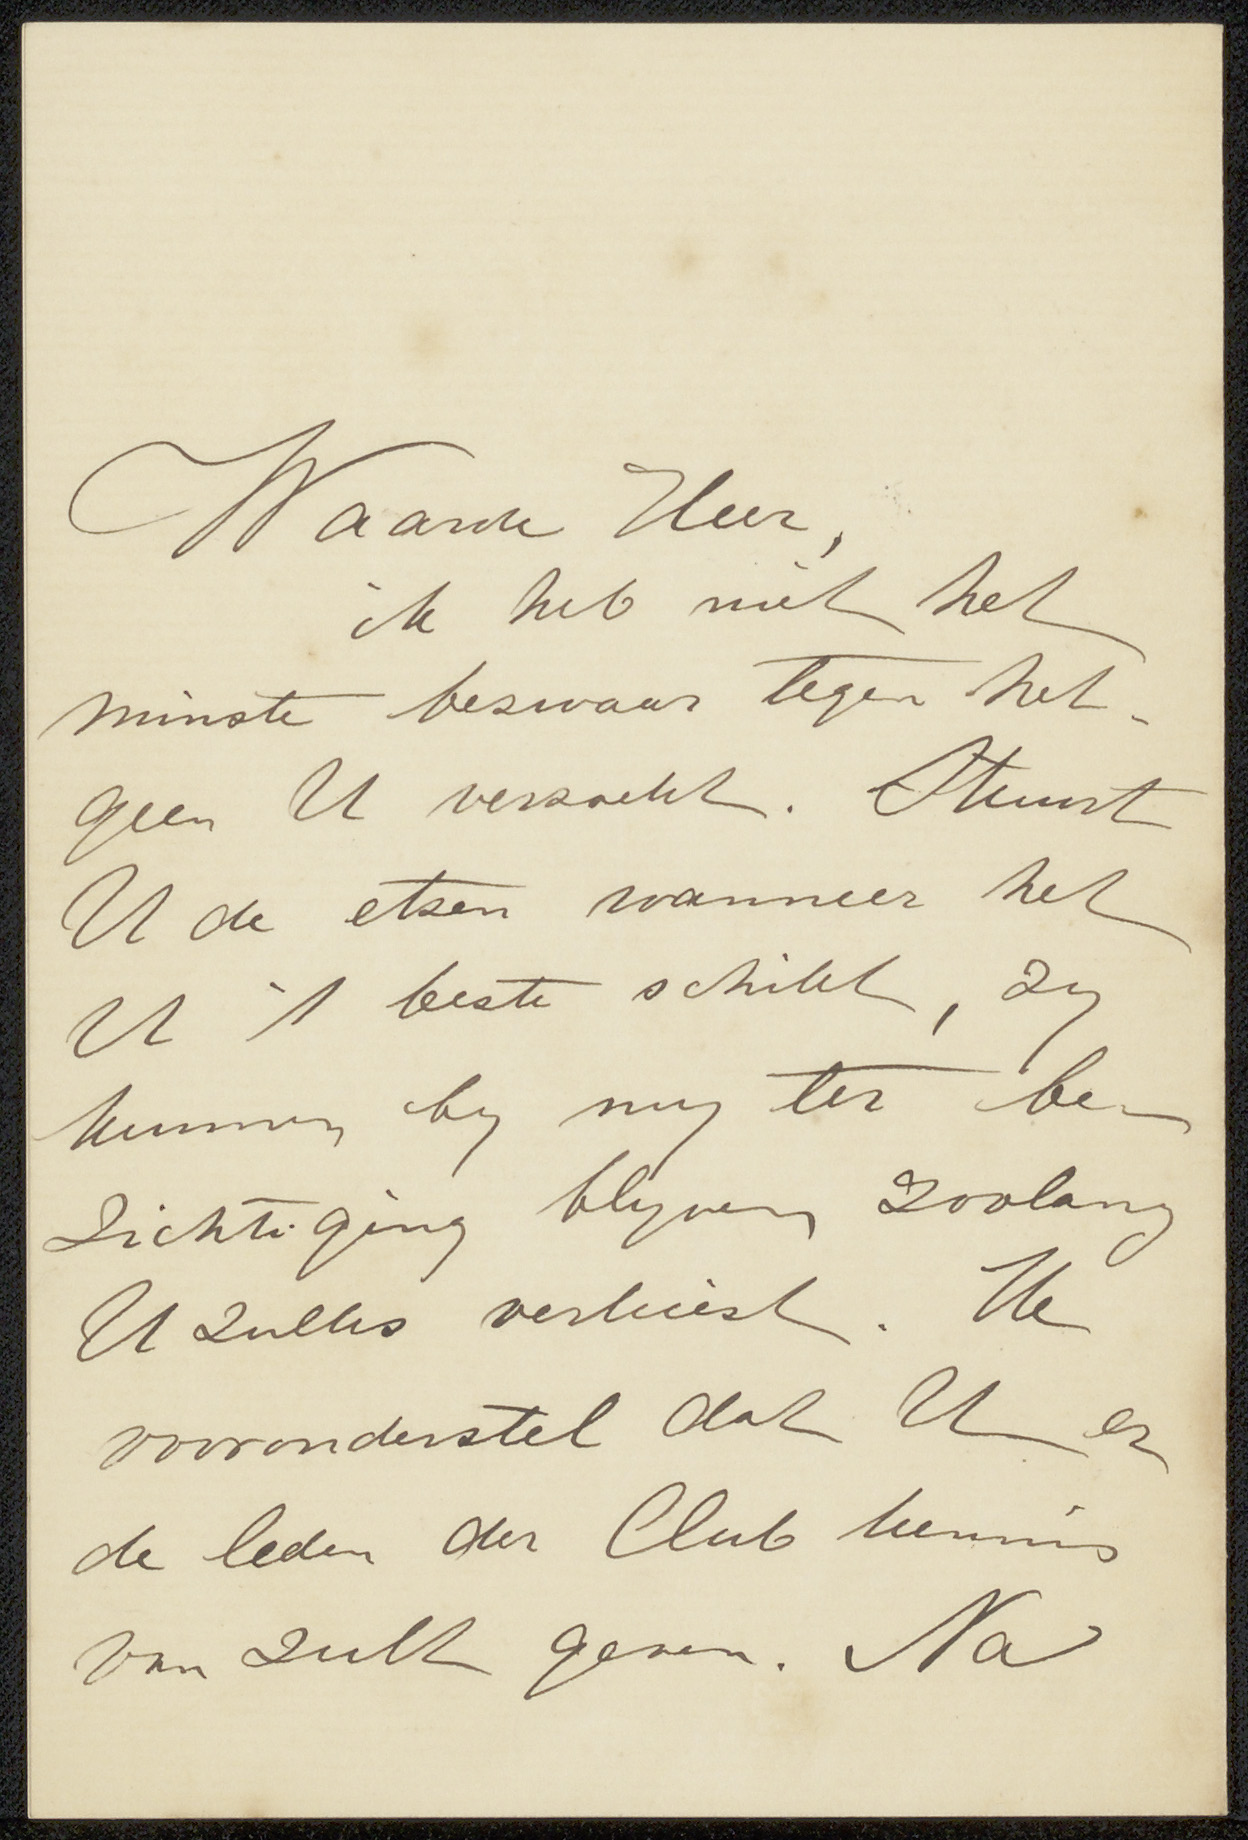 Waarde Heer,
ik heb niet het
minste bezwaar tegen het-
geen U verzoekt. Stuurt
U de etsen wanneer het
U 't beste schikt, zy
kunnen by my ter be-
zichtiging blyven zoolang
U zulks verkiest. Ik
vooronderstel dat U er
de leden der Club kennis
van zult geven. Na